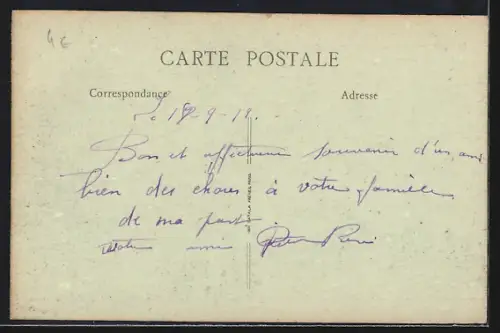 4€
CARTE POSTALE
Correspondance
Adresse
Le 18-9-11.
Bon et affectueux souvenir d'un ami
bien des choses à votre famille
de ma part
votre ami